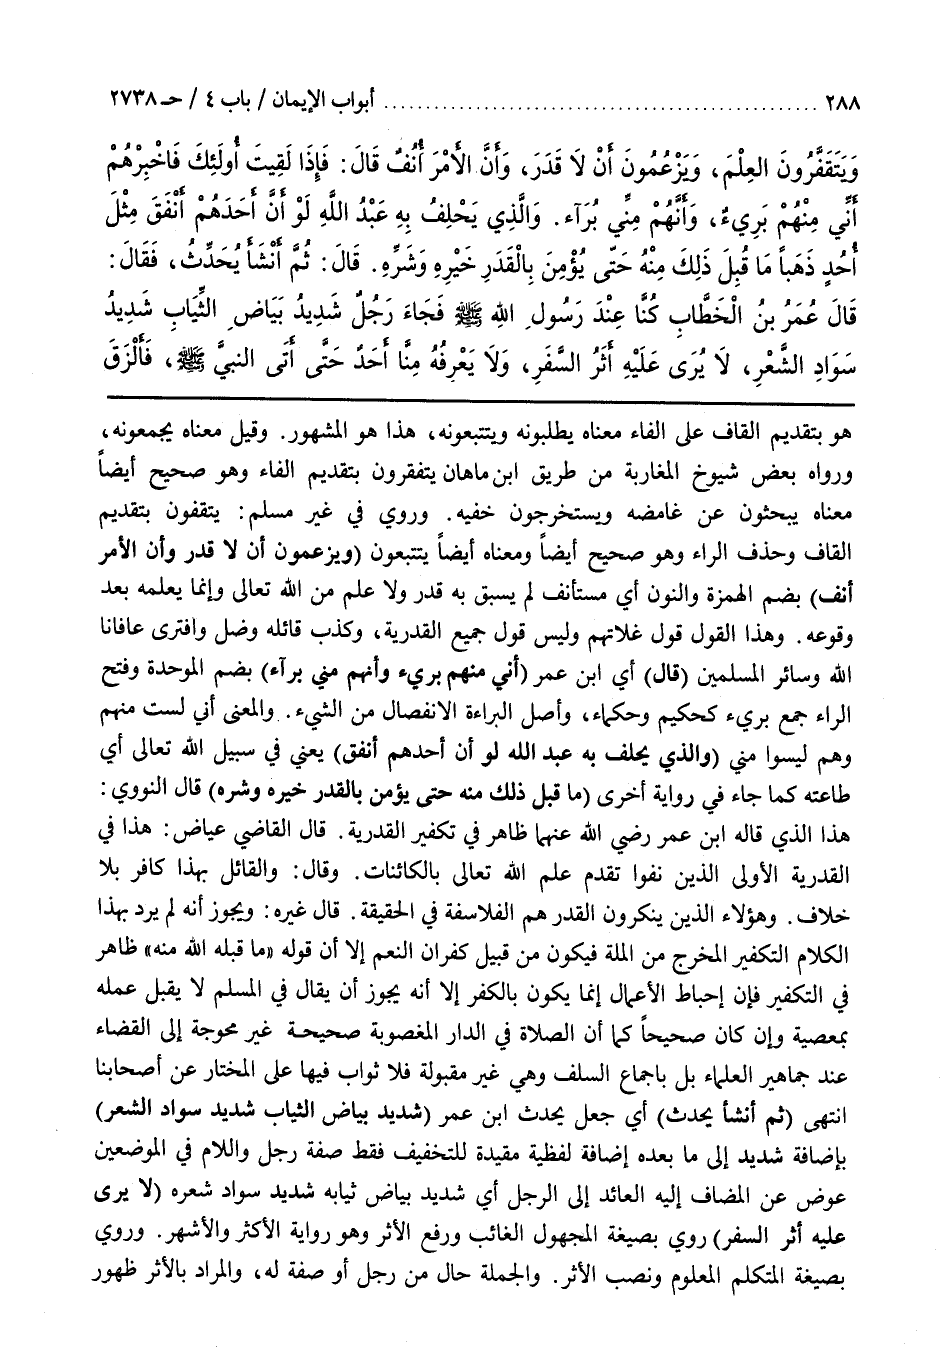 ٢٨٨ ........................................ أبواب الإيمان / باب ٤ / حـ ٢٧٣٨
وَيَتَقَفَّرُونَ العِلْمَ، وَيَزْعُمُونَ أَنْ لَا قَدَرَ، وَأَنَّ الأَمْرَ أُنُفٌ قَالَ: فَإِذَا لَقِيتَ أُولَئِكَ فَاخْبِرْهُمْ
أَنِّي مِنْهُمْ بَرِيءٌ، وَأَنَّهُمْ مِنِّي بُرَآء. وَالَّذِي يَحْلِفُ بِهِ عَبْدُ اللهِ لَوْ أَنَّ أَحَدَهُمْ أَنْفَقَ مِثْلَ
أُحُدٍ ذَهَباً مَا قُبِلَ ذَلِكَ مِنْهُ حَتَّى يُؤْمِنَ بِالْقَدَرِ خَيْرِهِ وَشَرِّهِ. قَالَ: ثُمَّ أَنْشَأَ يُحَدِّثُ، فَقَالَ:
قَالَ عُمَرُ بنُ الْخَطَّابِ كُنَّا عِنْدَ رَسُولِ اللهِ ﷺ فَجَاءَ رَجُلٌ شَدِيدُ بَيَاضِ الثِّيَابِ شَدِيدُ
سَوَادِ الشَّعْرِ، لَا يُرَى عَلَيْهِ أَثَرُ السَّفَرِ، وَلَا يَعْرِفُهُ مِنَّا أَحَدٌ حَتَّى أَتَى النبيَّ ﷺ، فَأَلْزَقَ
هو بتقديم القاف على الفاء معناه يطلبونه ويتتبعونه، هذا هو المشهور. وقيل معناه يجمعونه،
ورواه بعض شيوخ المغاربة من طريق ابن ماهان يتفقرون بتقديم الفاء وهو صحيح أيضاً
معناه يبحثون عن غامضه ويستخرجون خفيه. وروي في غير مسلم: يتقفون بتقديم
القاف وحذف الراء وهو صحيح أيضاً ومعناه أيضاً يتتبعون (ويزعمون أن لا قدر وأن الأمر
أنف) بضم الهمزة والنون أي مستأنف لم يسبق به قدر ولا علم من الله تعالى وإنما يعلمه بعد
وقوعه. وهذا القول قول غلاتهم وليس قول جميع القدرية، وكذب قائله وضل وافترى عافانا
الله وسائر المسلمين (قال) أي ابن عمر (أني منهم بريء وأنهم مني برآء) بضم الموحدة وفتح
الراء جمع بريء كحكيم وحكماء، وأصل البراءة الانفصال من الشيء. والمعنى أني لست منهم
وهم ليسوا مني (والذي يحلف به عبد الله لو أن أحدهم أنفق) يعني في سبيل الله تعالى أي
طاعته كما جاء في رواية أخرى (ما قبل ذلك منه حتى يؤمن بالقدر خيره وشره) قال النووي:
هذا الذي قاله ابن عمر رضي الله عنهما ظاهر في تكفير القدرية. قال القاضي عياض: هذا في
القدرية الأولى الذين نفوا تقدم علم الله تعالى بالكائنات. وقال: والقائل بهذا كافر بلا
خلاف. وهؤلاء الذين ينكرون القدر هم الفلاسفة في الحقيقة. قال غيره: ويجوز أنه لم يرد بهذا
الكلام التكفير المخرج من الملة فيكون من قبيل كفران النعم إلا أن قوله «ما قبله الله منه» ظاهر
في التكفير فإن إحباط الأعمال إنما يكون بالكفر إلا أنه يجوز أن يقال في المسلم لا يقبل عمله
بمعصية وإن كان صحيحاً كما أن الصلاة في الدار المغصوبة صحيحة غير محوجة إلى القضاء
عند جماهير العلماء بل باجماع السلف وهي غير مقبولة فلا ثواب فيها على المختار عن أصحابنا
انتهى (ثم أنشأ يحدث) أي جعل يحدث ابن عمر (شديد بياض الثياب شديد سواد الشعر)
بإضافة شديد إلى ما بعده إضافة لفظية مفيدة للتخفيف فقط صفة رجل واللام في الموضعين
عوض عن المضاف إليه العائد إلى الرجل أي شديد بياض ثيابه شديد سواد شعره (لا يرى
عليه أثر السفر) روي بصيغة المجهول الغائب ورفع الأثر وهو رواية الأكثر والأشهر. وروي
بصيغة المتكلم المعلوم ونصب الأثر. والجملة حال من رجل أو صفة له، والمراد بالأثر ظهور